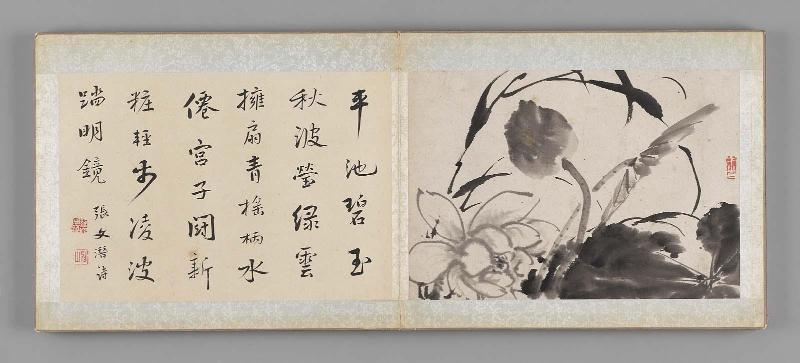 平池碧玉
秋波瑩綠雲
擁扇青搖柄水
僊宮子鬪新
粧輕步凌波
踏明鏡
張文潛詩